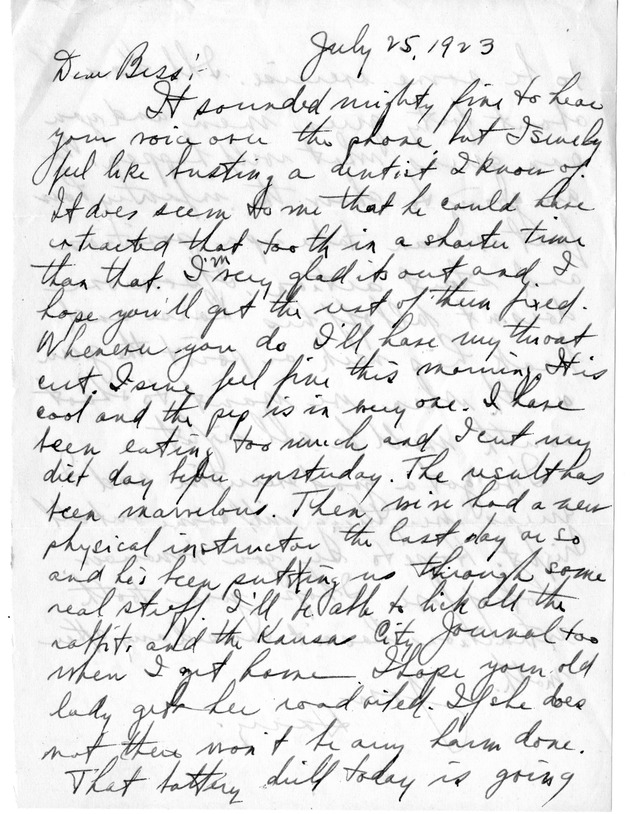 July 25, 1923
Dear Bess:-
It sounded mighty fine to hear
your voice over the phone, but I surely
feel like busting a dentist I know of.
It does seem to me that he could have
extracted that tooth in a shorter time
than that. I'm very glad its out and I
hope you'll get the rest of them fixed.
Whenever you do I'll have my throat
cut. I sure feel fine this morning. It is
cool and the pep is in every one. I have
been eating too much and I cut my
diet day before yesterday. The result has
been marvelous. Then we've had a new
physical instructor the last day or so
and he's been putting us through some
real stuff. I'll be able to lick all the
rabbits and the Kansas City Journal too
when I get home. I hope your old
lady gets her road oiled. If she does
not there won't be any harm done.
That battery drill today is going